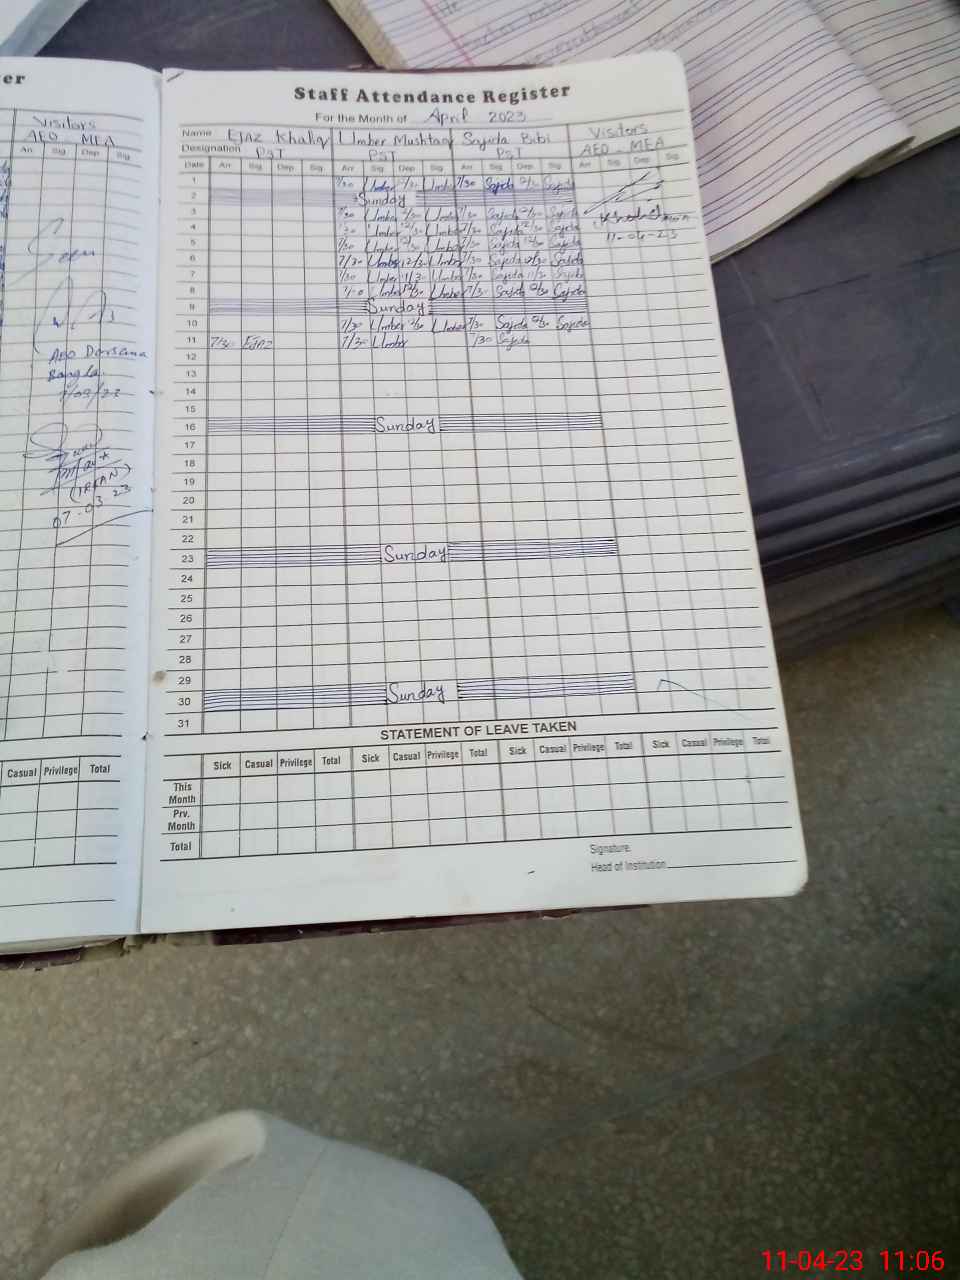 er
Visitors
AEO - MEA
Arr Sig Dep Sig
AEO Dorsana
Bangla.
(IRFAN)
07-03-23
Casual Privilege Total
Staff Attendance Register
For the Month of April 2023
Name Ejaz Khaliq Umber Mushtaq Sajida Bibi Visitors
Designation PST PST PST AEO - MEA
Date Arr Sig Dep Sig Arr Sig Dep Sig Arr Sig Dep Sig Arr Sig Dep Sig
1 7/30 Umber 12/30 Umber 7/30 Sajida 12/30 Sajida
2 Sunday
3 7/30 Umber 12/30 Umber 7/30 Sajida 12/30 Sajida
4 Umber 12/30 Umber 7/30 Sajida 12/30 Sajida
11-04-23
5 7/30 Umber 12/30 Umber 7/30 Sajida 12/30 Sajida
6 7/30 Umber 12/30 Umber 7/30 Sajida 12/30 Sajida
7 7/30 Umber 11/30 Umber 7/30 Sajida 11/30 Sajida
8 Umber 12/30 Umber 7/30 Sajida 12/30 Sajida
9 Sunday
10 7/30 Umber 12/30 Umber 7/30 Sajida 12/30 Sajida
11 7/30 Ejaz 7/30 Umber 7/30 Sajida
12
13
14
15
16 Sunday
17
18
19
20
21
22
23 Sunday
24
25
26
27
28
29
30 Sunday
31
STATEMENT OF LEAVE TAKEN
Sick Casual Privilege Total Sick Casual Privilege Total Sick Casual Privilege Total Sick Casual Privilege Total
This
Month
Prv.
Month
Total
Signature.
Head of Institution
11-04-23 11:06